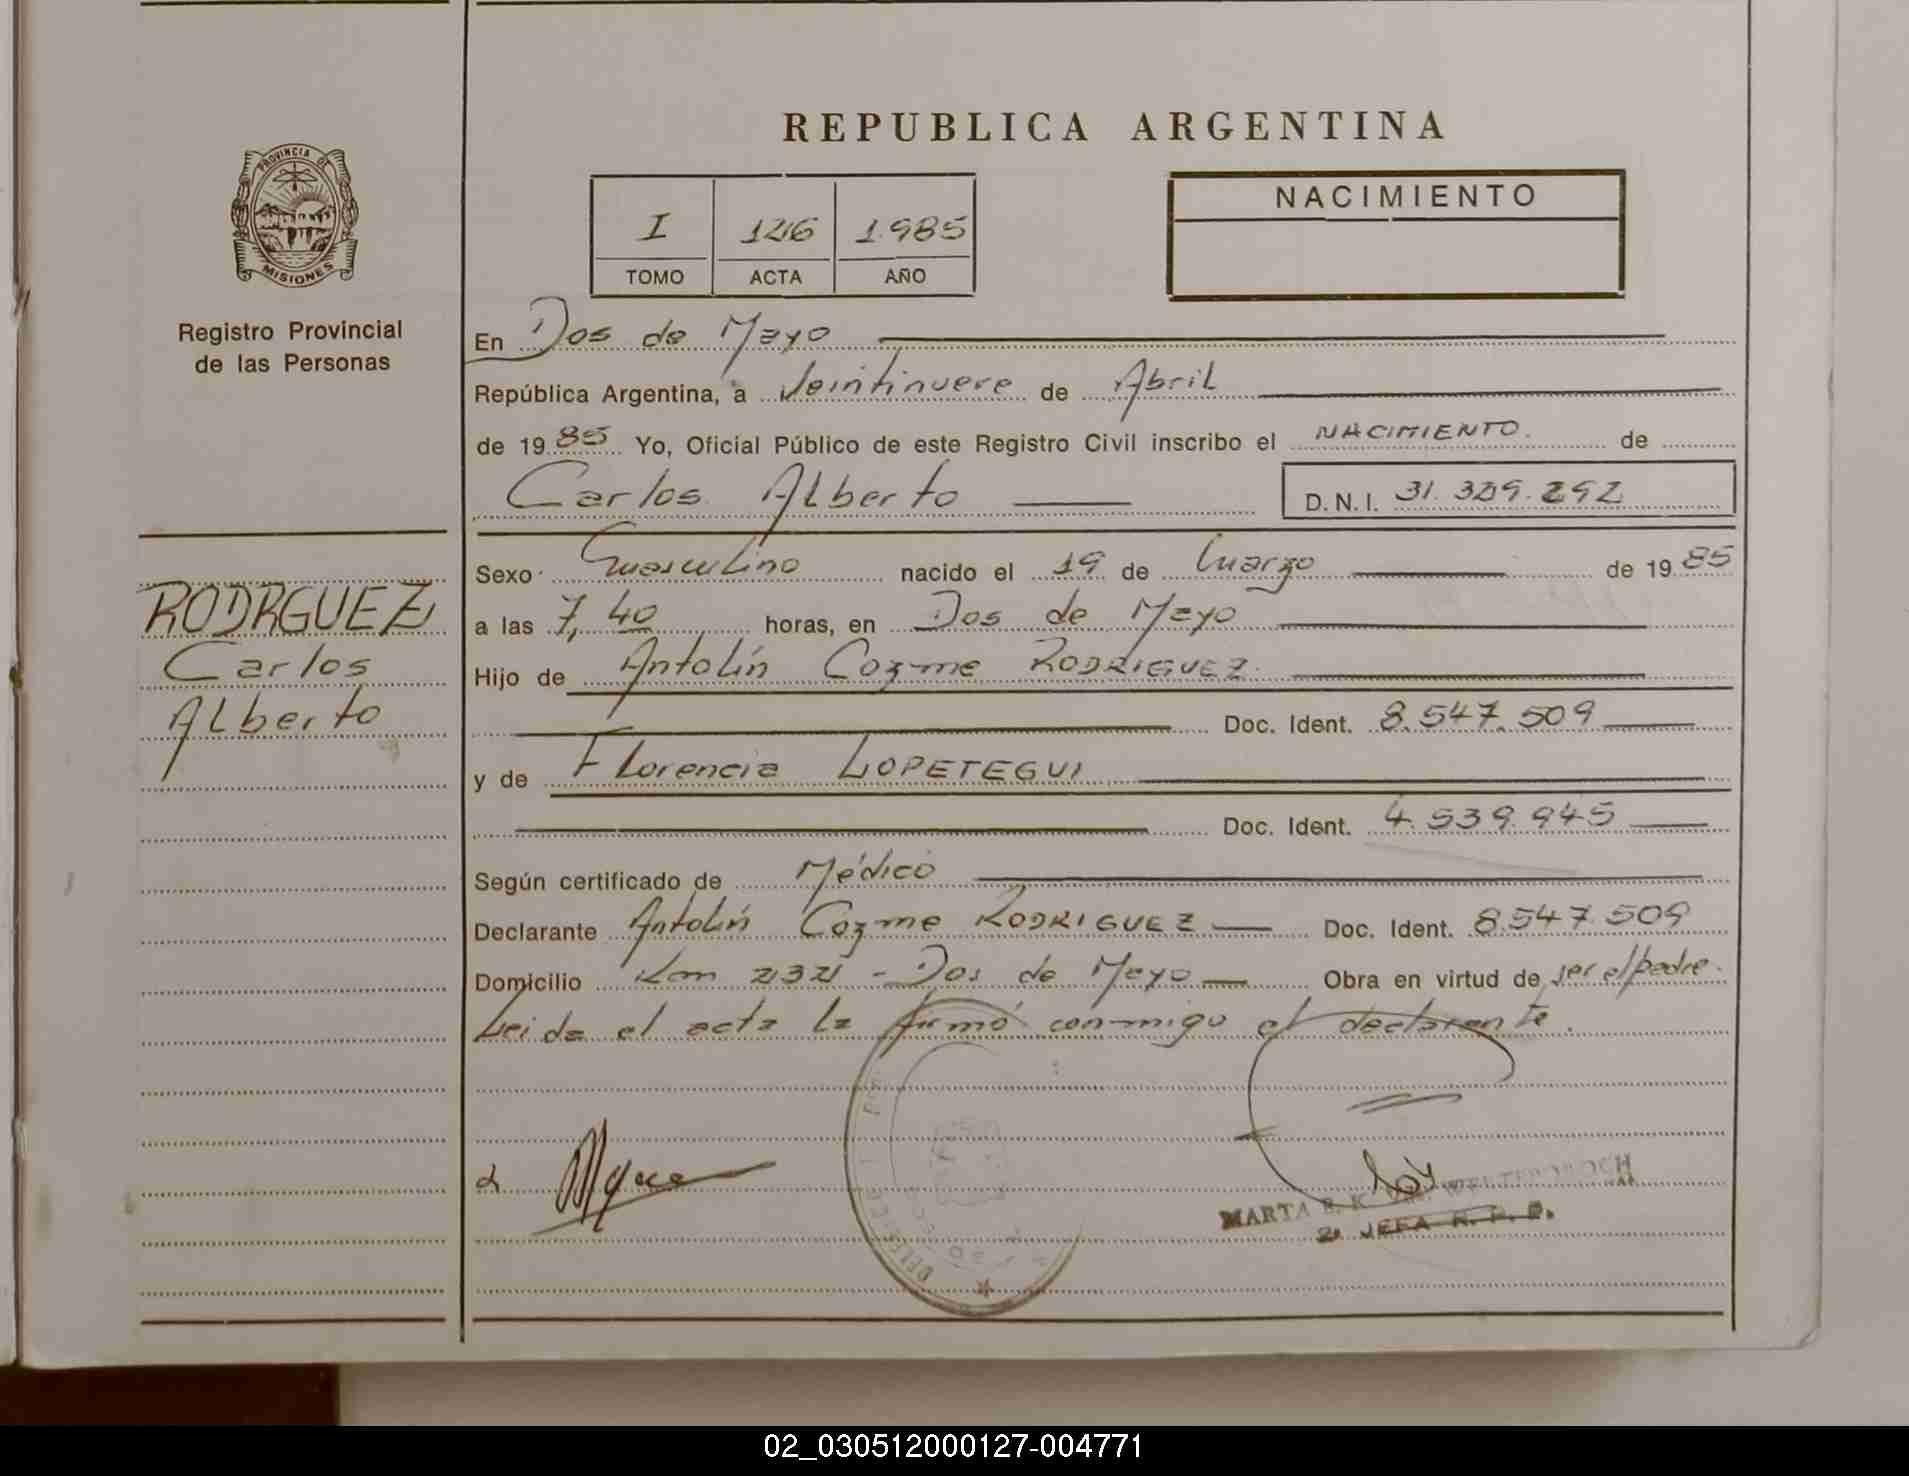 REPUBLICA ARGENTINA
PROVINCIA DE
MISIONES
Registro Provincial
de las Personas
I 126 1985
TOMO ACTA AÑO
NACIMIENTO
En Dos de Mayo
República Argentina, a Veintinueve de Abril
de 1985 Yo, Oficial Público de este Registro Civil inscribo el NACIMIENTO. de
Carlos Alberto D.N.I. 31.329.292
Sexo Masculino nacido el 19 de Marzo de 1985
a las 7,40 horas, en Dos de Mayo
Hijo de Antolín Cozme RODRIGUEZ.
Doc. Ident. 8.547.509
y de Florencia LOPETEGUI
Doc. Ident. 4.539.945
Según certificado de Médico
Declarante Antolín Cozme RODRIGUEZ Doc. Ident. 8.547.509
Domicilio Km 232 - Dos de Mayo Obra en virtud de ser el padre.
Leida el acta la firmó conmigo el declarente.
MARTA
JEFA R. P. P.
RODRGUEZ
Carlos
Alberto
02_030512000127-004771